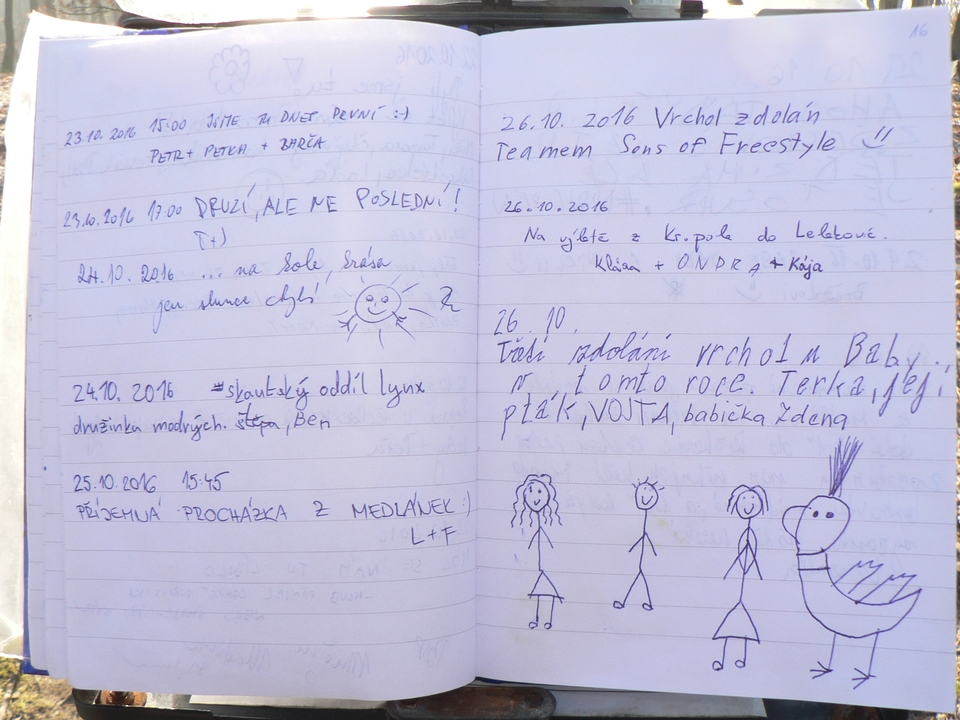 23.10.2016 15:00 JSME TU DNES PRVNÍ :-)
PETR + PETKA + BARČA
23.10.2016 17:00 DRUZÍ, ALE NE POSLEDNÍ!
24.10.2016 ... na kole, krása
jen slunce chybí
24.10.2016 skautský oddíl Lynx
družinka modrých. štěpa, Ben
25.10.2016 15:45
PŘÍJEMNÁ PROCHÁZKA Z MEDLÁNEK :)
L + F
16
26.10. 2016 Vrchol zdolán
Teamem Sons of Freestyle
26.10.2016
Na výletě z Kr. pole do Lelekovic.
+ ONDRA + Kája
26.10.
Třetí zdolání vrcholu Baby
v tomto roce. Terka, její
pták, VOJTA, babička Zdena